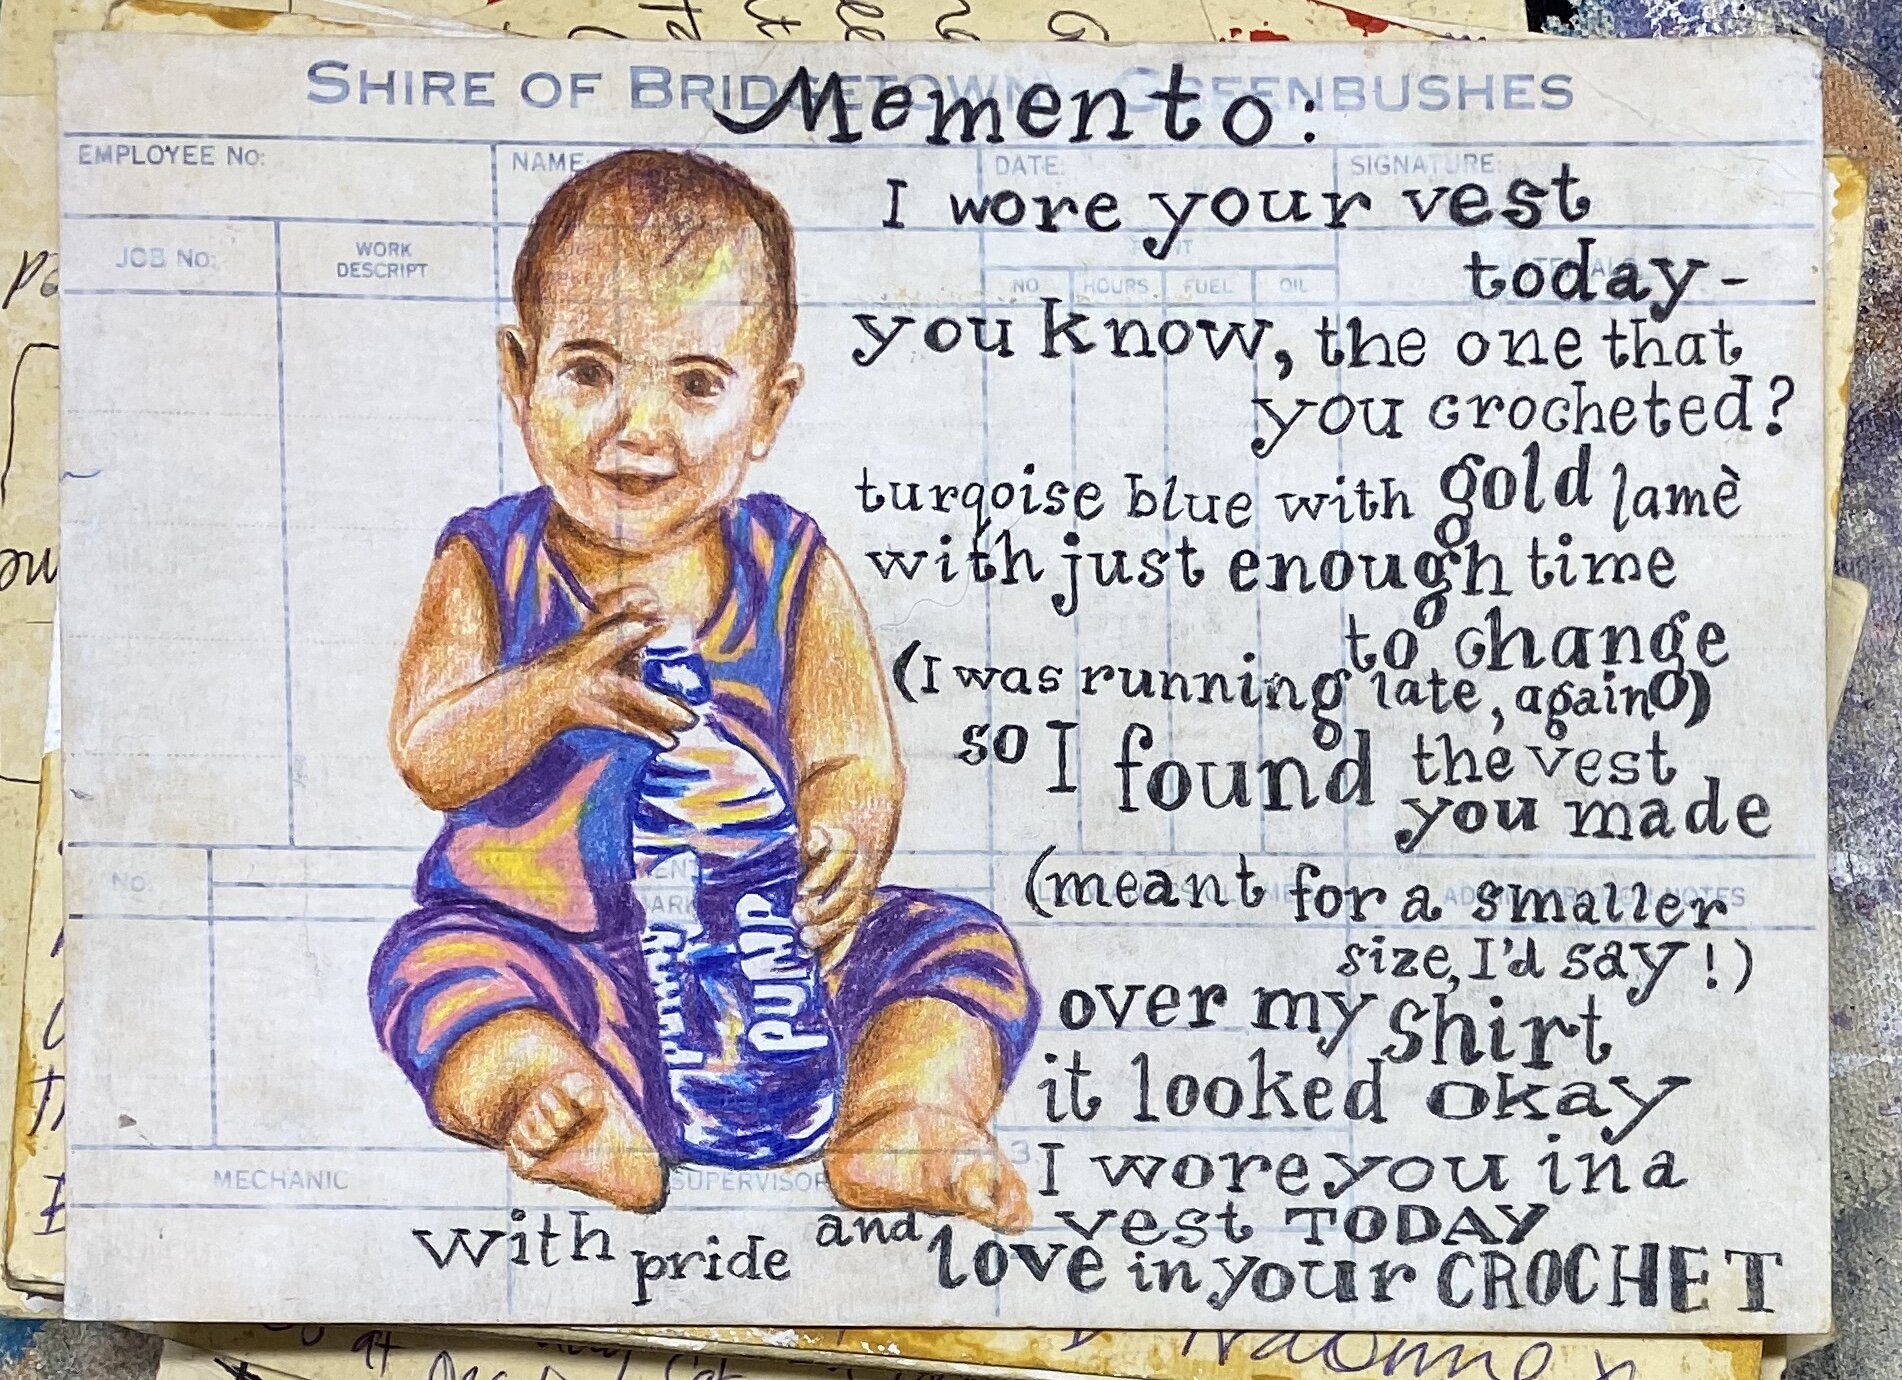 SHIRE OF BRIDGETOWN GREENBUSHES
Memento:
EMPLOYEE NO:
NAME
DATE:
SIGNATURE:
I wore your vest
today -
JOB NO:
WORK
DESCRIPT
NO
HOURS
FUEL
OIL
you know, the one that
you crocheted?
turqoise blue with gold lamè
with just enough time
to change
(I was running late, again)
so I found the vest
you made
NO.
(meant for a smaller
size, I'd say!)
NOTES
over my shirt
it looked okay
PUMP
I wore you in a
MECHANIC
SUPERVISOR
vest TODAY
with pride and love in your CROCHET